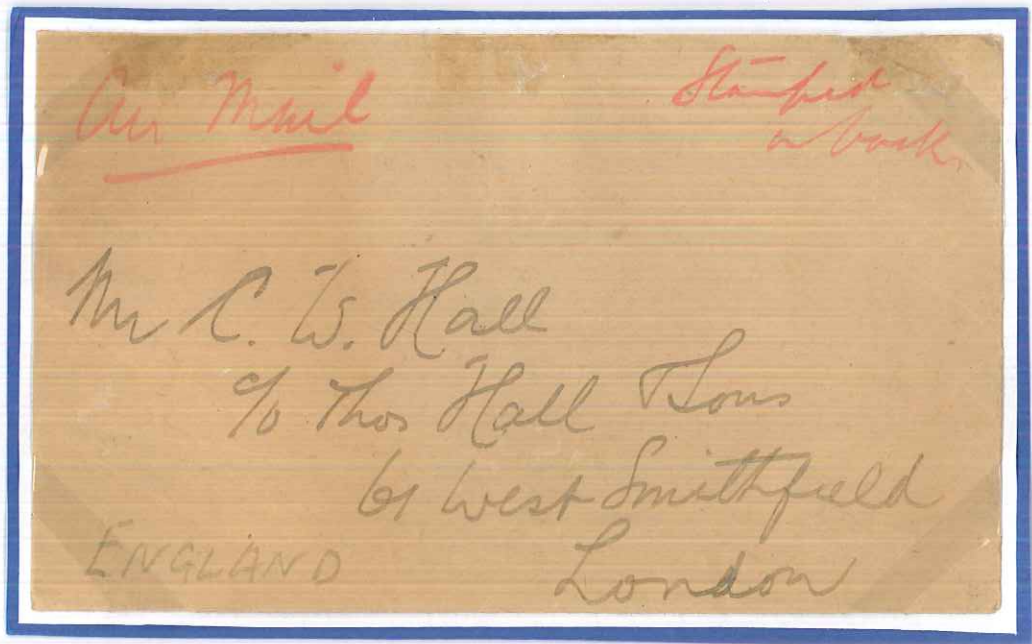 Air Mail
Stamped
on back
Mr C. W. Hall
c/o Thos Hall & Sons
61 West Smithfield
London
ENGLAND